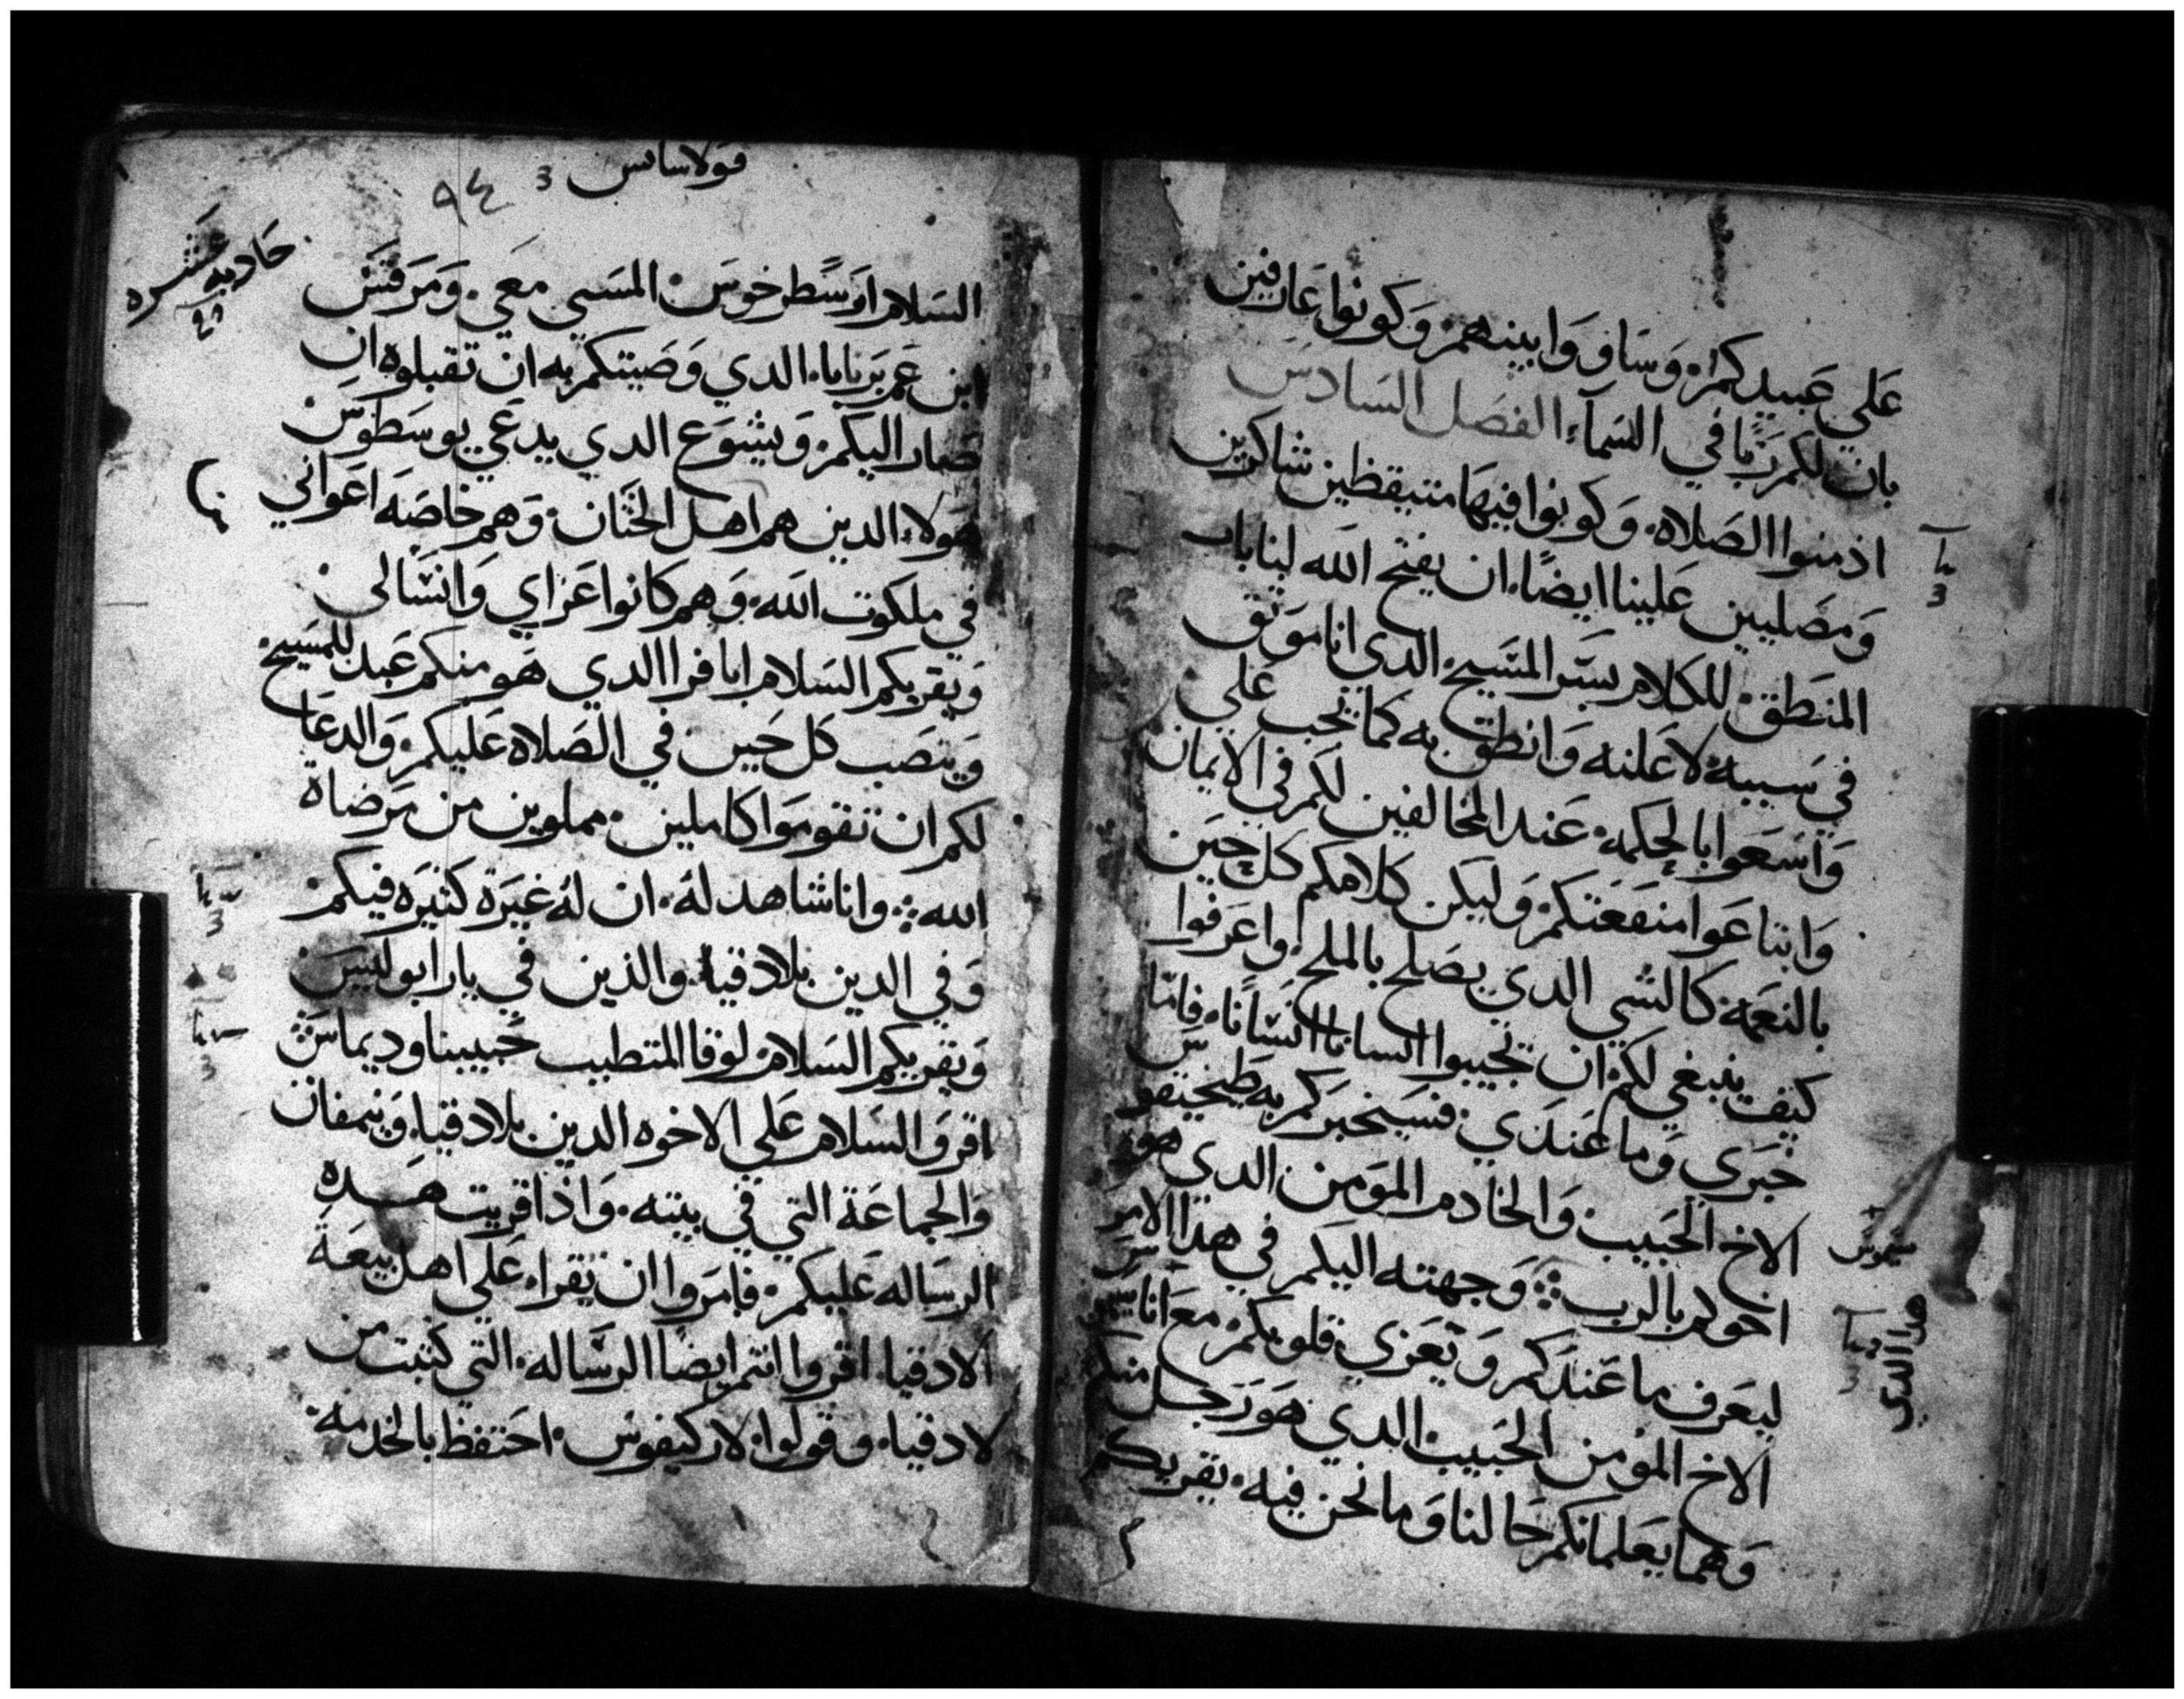 علي عبيدكم. وساووا بينهم. وكونوا عارفين
بان لكم ربًا في السماء. الفصل السادس
ادمنوا الصلاه. وكونوا فيها متيقظين شاكرين
ومصليين علينا ايضًا. ان يفتح الله لنا باب
المنطق للكلام بسر المسيح. الدي انا موثق
في سببه لاعلنه وانطق به كما يجب علي.
واسعوا بالحكمه. عند المخالفين لكم في الايمان
وابتاعوا منفعتكم. وليكن كلامكم كل حين
بالنعمه كالشي الدي يصلح بالملح. واعرفوا
كيف ينبغي لكم ان تجيبوا انسانا انسانًا. فاما
خبري وما عندي. فسيخبركم به طيخيقوس
الاخ الحبيب والخادم المومن الدي هو
اخوكم بالرب. وجهته اليكم في هدا الامر
ليعرف ما عندكم ويعزي قلوبكم. مع اناسيموس
الاخ المومن الحبيب الدي هو رجل منكم
وهما يعلمانكم حالنا وما نحن فيه. يقريكم
هدا الدي
قولاسايس
٩٤
حاديه عشره
السلام ارسطرخوس المسبي معي. ومرقس
ابن عم برنابا. الدي وصيتكم به ان تقبلوه ان
صار اليكم. ويشوع الدي يدعي يوسطوس.
هولاء الدين هم اهل الختان. وهم خاصه اعواني
في ملكوت الله. وهم كانوا عزاي وانسا لي.
ويقريكم السلام ابافرا الدي هو منكم عبد للمسيح.
وينصب كل حين في الصلاه عليكم. والدعا
لكم ان تقوموا كاملين. مملوين من مرضاة
الله. وانا شاهد له. ان له غيرة كثيره فيكم
وفي الدين بلادقيا. والذين في يارابوليس
ويقريكم السلام لوقا المتطبب حبيبنا وديماس
اقروا السلام علي الاخوه الدين بلادقيا. ونمفان
والجماعة التي في بيته. واذا قريت هده
الرساله عليكم. فامروا ان يقرا. علي اهل بيعة
الادقيا. اقروا انتم ايضا الرساله. التي كتبت من
لادقيا. وقولوا لاركيفوس. احتفظ بالخدمه.